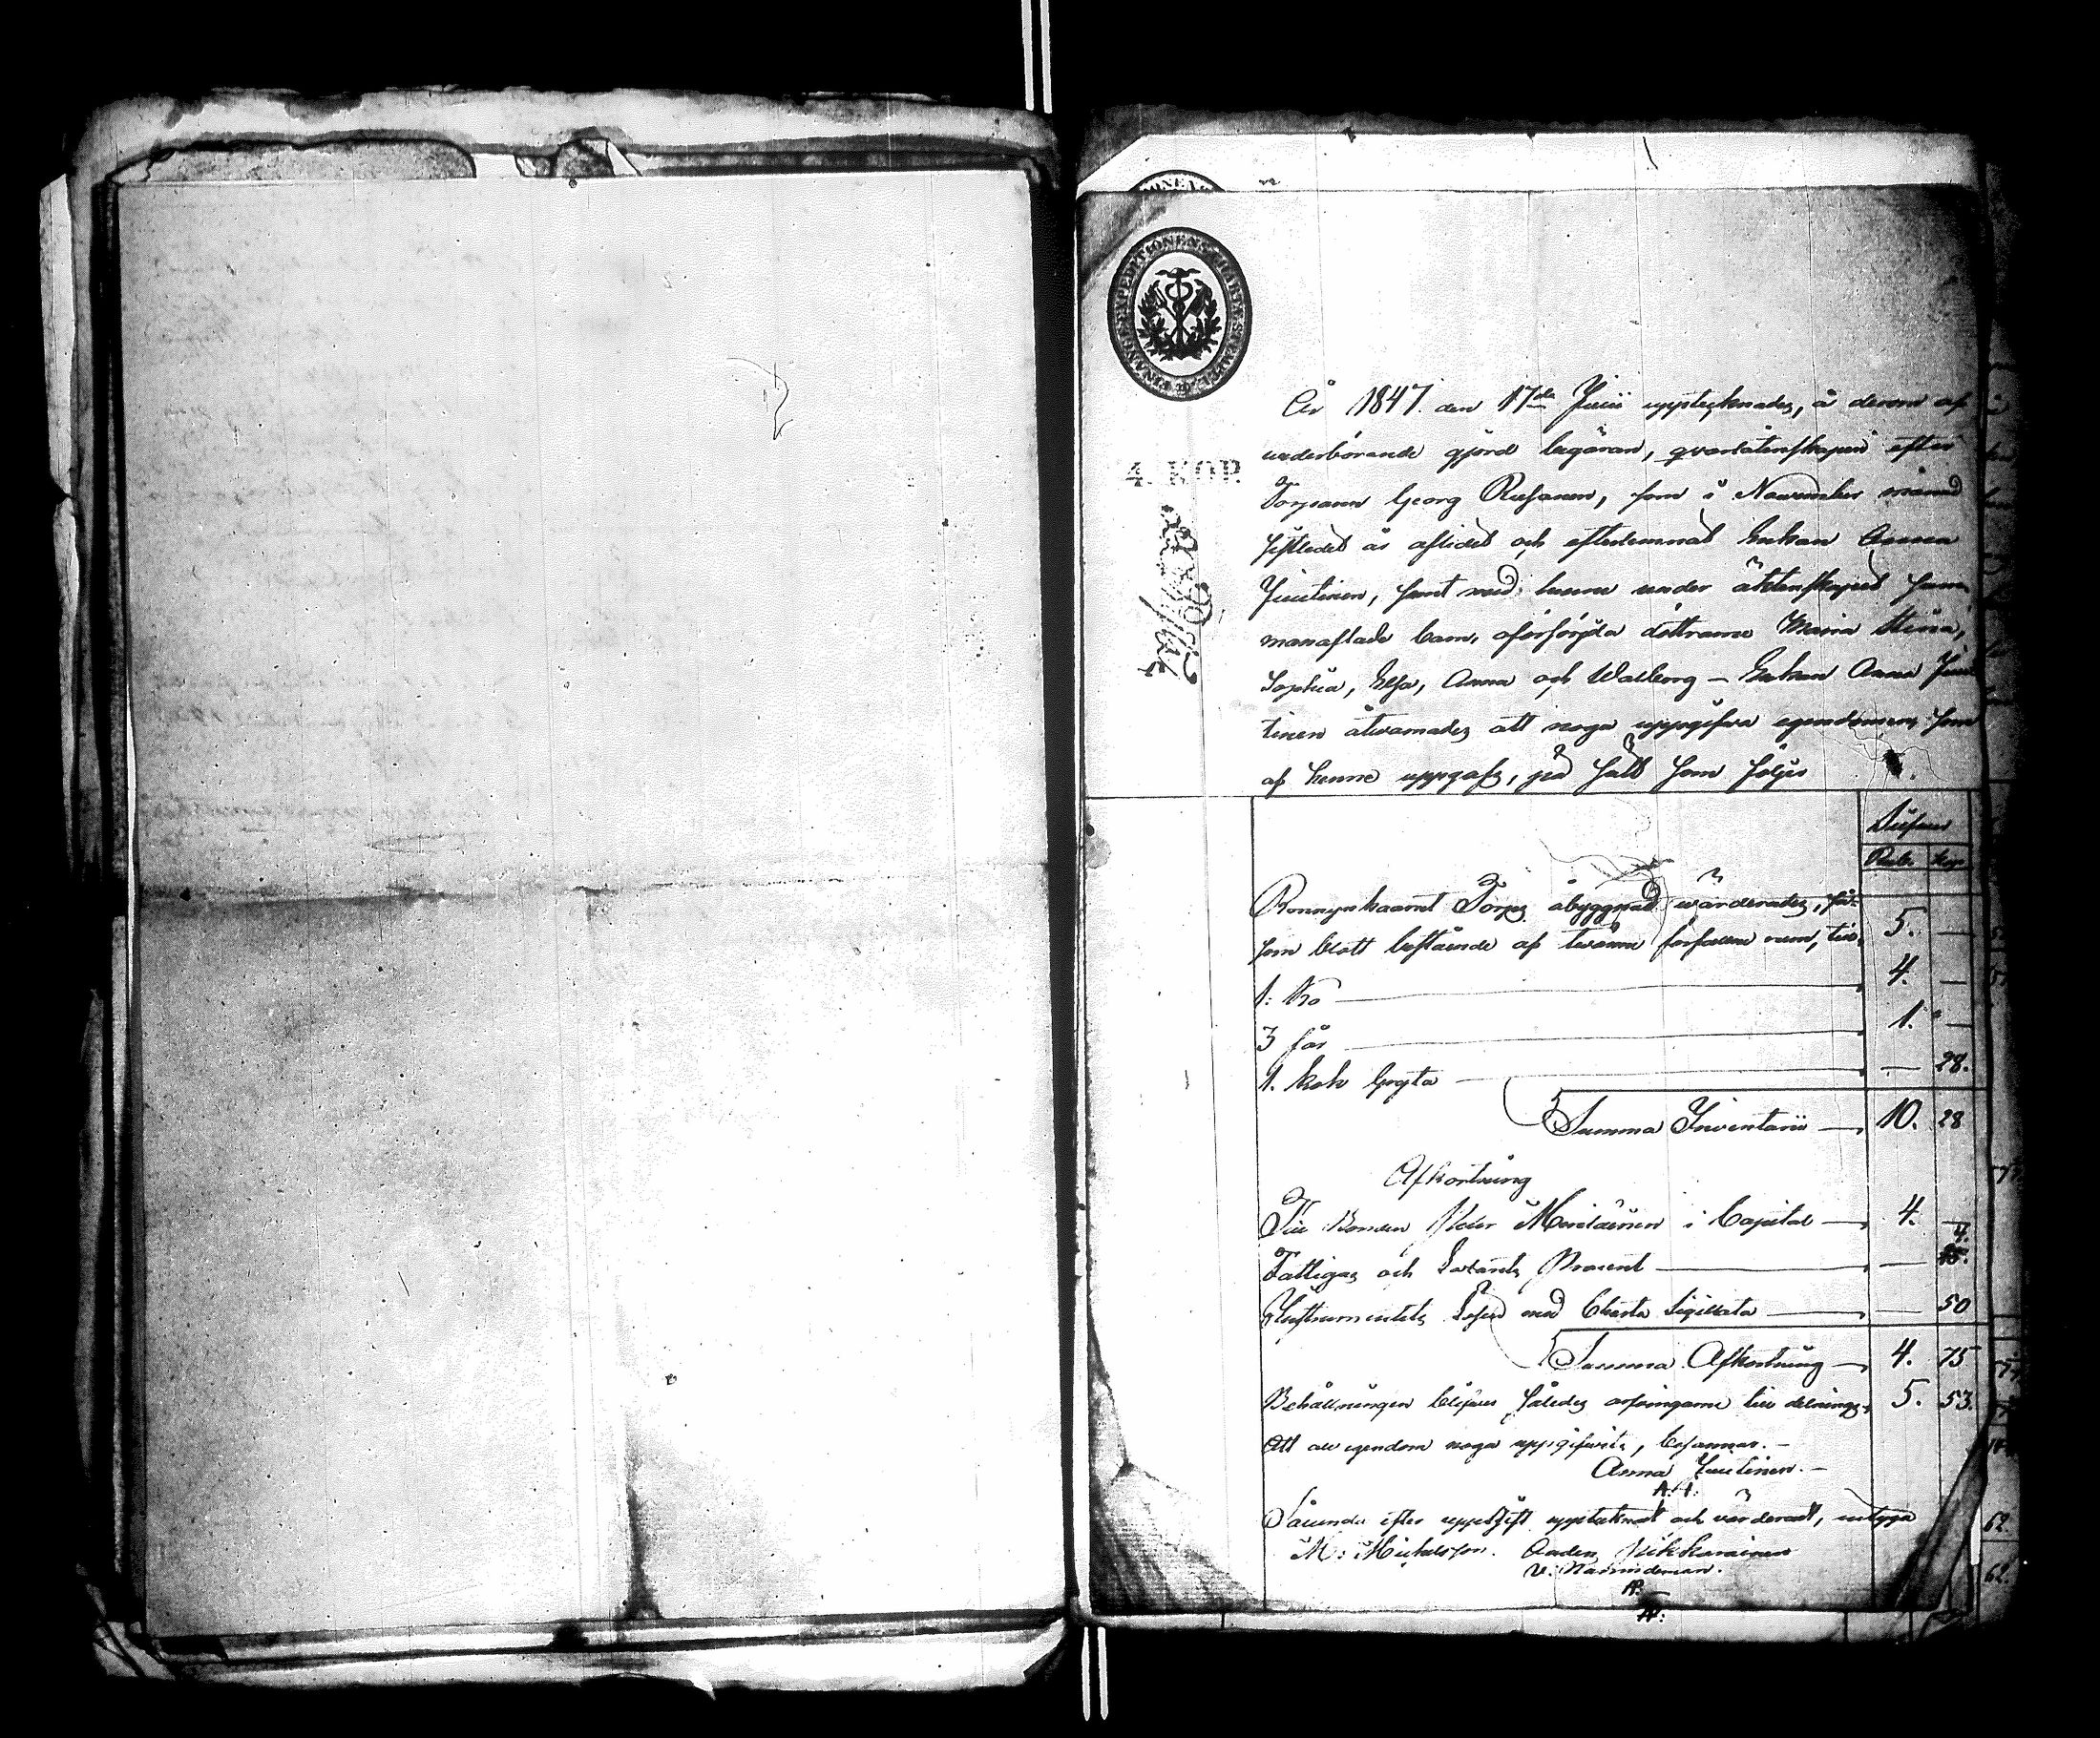 FINANCE EXPEDITIONENS CHARTÆ STÄMPEL
4. KOP.
År 1847. den 17de Juni upptecknades, å derom af
vederbörande gjord begäran, qvarlåtenskapen efter
Torparen Georg som i November månad
sistledet år aflidet och efterlemnat Enkan Anna
Juutinen, samt med henne under äktenskapet sam-
manaflade barn, oförsörjda döttrarne Maria Stina,
Sophia, Elsa, Anna och Walborg – Enkan Anna Juu
tinen åtvarnades att noga uppgifva egendomen, som
af henne uppgafs, på sätt som följer
Silfver
Rub. Kop.
Torps åbyggnad värderades, så-
som blott bestående af tvänne förfallne rum, till 5. —
1: Ko 4. —
3 får 1. —
1. kok gryta — 28.
Summa Inventarii 10. 28
Afkortning
Till Bonden Peter i Capital 4. —
Fattigas och Procent —
Instrumentets Lösen med Charta Sigillata — 50
Summa Afkortning 4. 75
Behållningen blifver således arfvingarne till delnings 5. 53.
Att all egendom noga uppgifvits, besannar. –
Anna Juutinen. –
Sålunda efter uppgift upptecknat och värderat, intyga
M: Michelsson. Anders
v. Nämndeman.